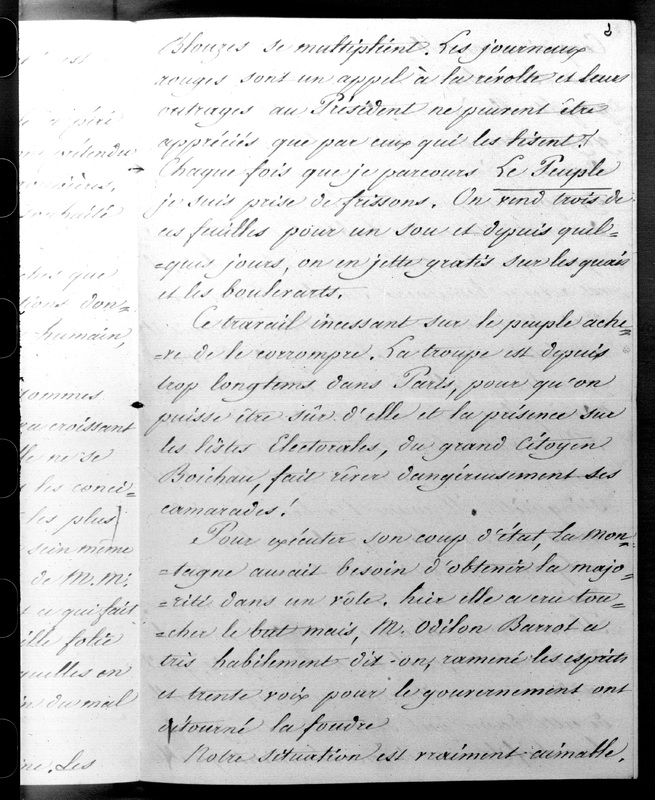 3
Blouzes se multiplient. Les journeaux
rouges sont un appel à la révolte et leurs
outrages au Président ne peuvent être
appréciés que par ceux qui les lisent!
Chaque fois que je parcours Le Peuple
je suis prise de frissons. On vend trois de
ces feuilles pour un sou et depuis quel=
=ques jours, on en jette gratis sur les quais
et les boulevarts.
Ce travail incessant sur le peuple ache=
=ve de le corrompre. La troupe est depuis
trop longtems dans Paris, pour qu'on
puisse être sûr d'elle et la présence sur
les listes Electorales, du grand Citoyen
Boichau, fait rêver dangéreusement ses
camarades!
Pour exécuter son coup d'état, la Mon=
=tagne aurait besoin d'obtenir la majo=
=rité dans un vôte. hier elle a cru tou=
=cher le but mais, M. Odilon Barrot a
très habilement dit-on, ramené les esprits
et trente voix pour le gouvernement ont
détourné la foudre
Notre situation est vraiment aimable.
est
péri
étendu
souhaité
que
tions don=
humain,
hommes
croissant
ne se
les conci=
les plus
sein même
de M. M.
qui fait
folie
quelles on
du mal
Les